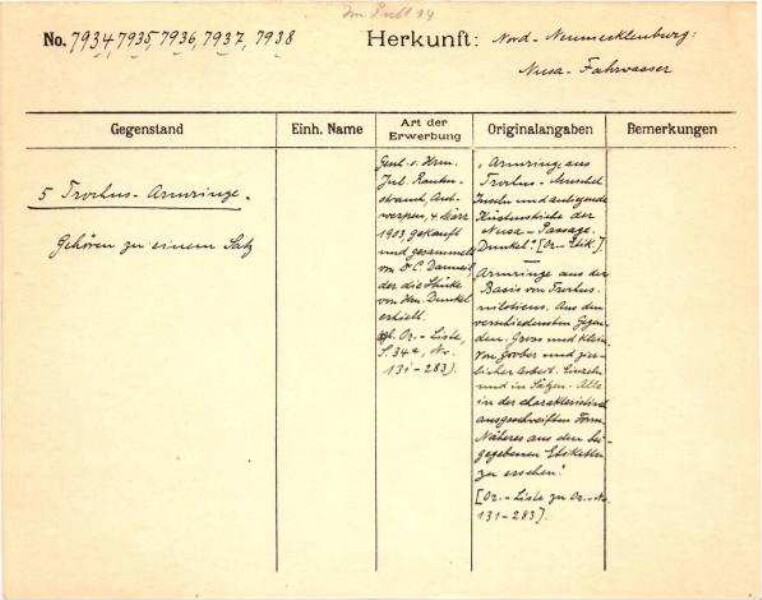 No. 7934, 7935, 7936, 7937, 7938
Herkunft: Nord-Neumecklenburg:
Nusa-Fahrwasser
Gegenstand
Einh. Name
Art der
Erwerbung
Originalangaben
Bemerkungen
5 Trochus-Armringe.
Gehören zu einem Satz
Gesch. v. Hrn.
Jul. Rauten-
strauch, Ant-
werpen, 4 März
1903, gekauft
und gesammelt
von Dr C. Danneil,
der die Stücke
von Hrn. Dunkel
erhielt.
Or.-Liste,
S. 34a, No.
131-283).
"Armringe aus
Trochus-Muschel
Inseln und anliegende
Küstenstriche der
Nusa-Passage.
Dunkel". [Or-Etik.].
"Armringe aus der
Basis von Trochus
niloticus. Aus den
verschiedensten Gegen-
den. Gross und klein.
Von grober und zier-
licher Arbeit. Einzeln
und in Sätzen. Alle
in der charakteristisch
ausgeschweiften Form.
Näheres aus den bei-
gegebenen Etiketten
zu ersehen".
[Or.-Liste zu Or.-No.
131-283].